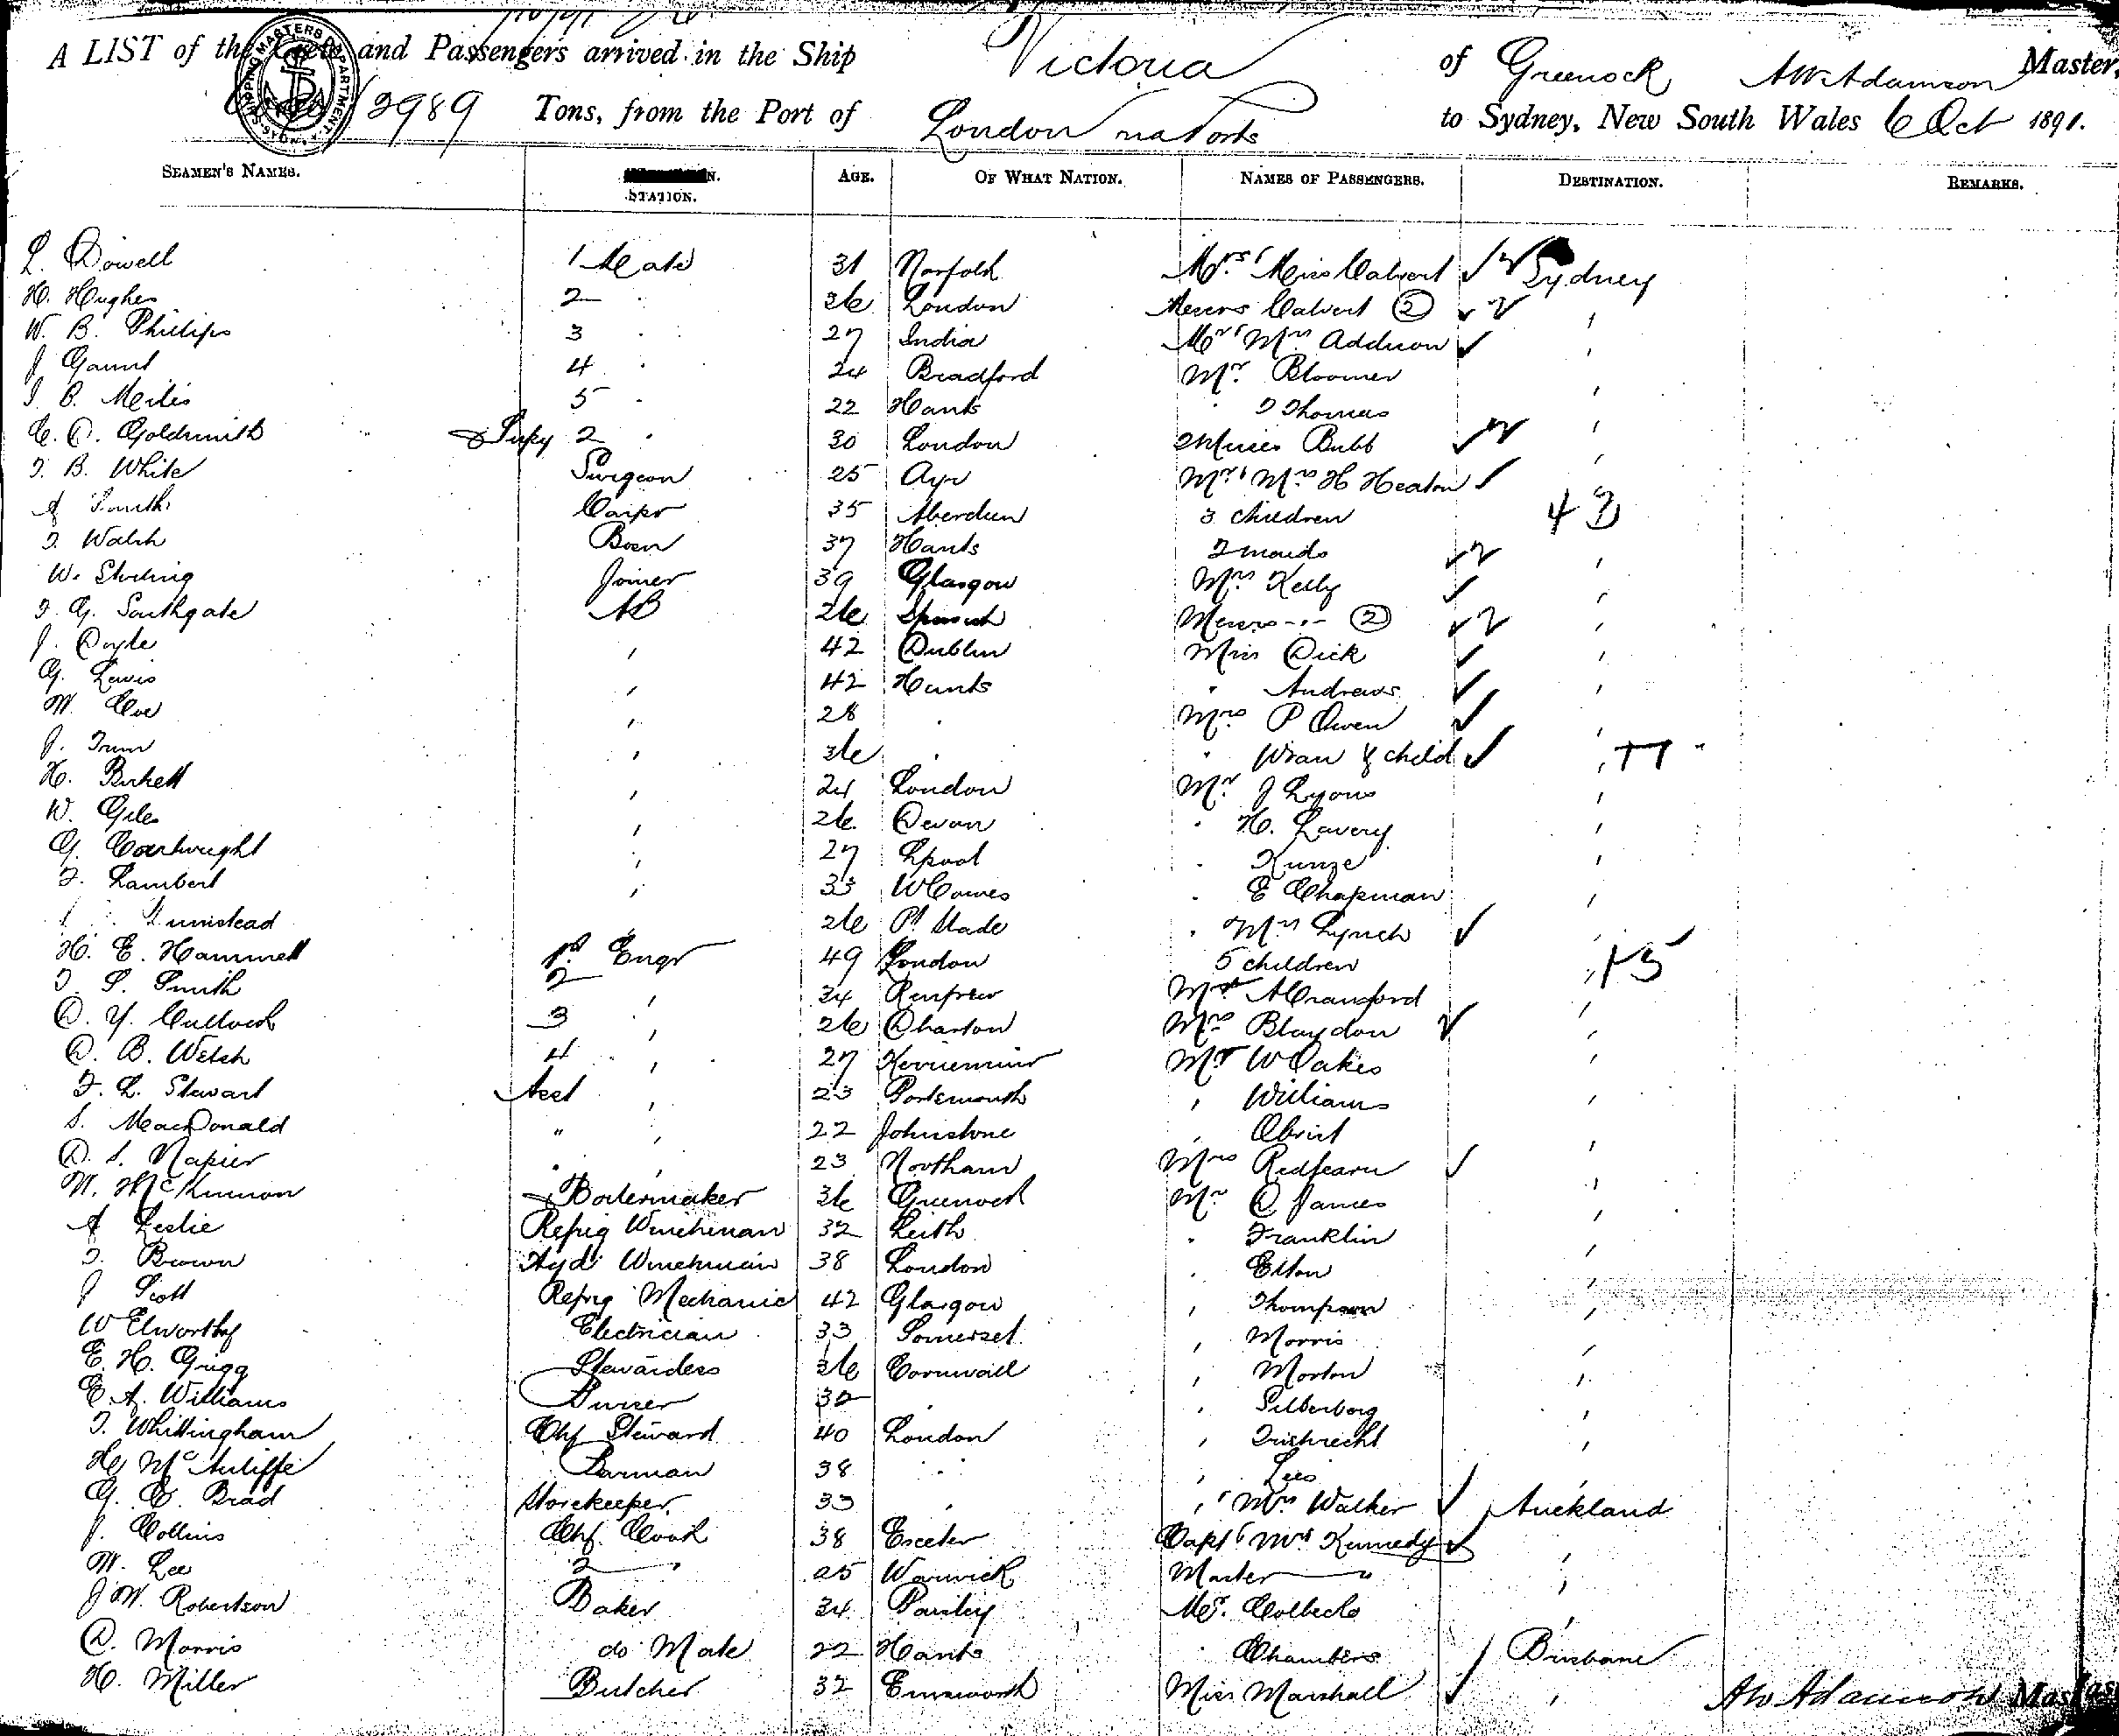 A LIST of the Crew and Passengers arrived in the Ship Victoria of Greenock A W Adamson Master,
2989 Tons, from the Port of London via Ports to Sydney, New South Wales 6 Oct 1891.
SHIPPING MASTERS DEPARTMENT
SEAMEN'S NAMES. STATION. AGE. OF WHAT NATION. NAMES OF PASSENGERS. DESTINATION. REMARKS.
L. Dowell 1 Mate 31 Norfolk Mrs & Miss Calvert Sydney
H. Hughes 2 " 36 London Messrs Calvert 2 "
W. B. Phillips 3 " 27 India Mr & Mrs Addison "
J Gaunt 4 " 24 Bradford Mr. Bloomer "
B. 5 " 22 Hants " Thomas "
C. D. Goldsmith Supy 2 " 30 London 2 Misses Bubb "
T. B. White Surgeon 25 Ayr Mr & Mrs H Heaton "
A Smith Carpr 35 Aberdeen 3 children 4 3
T. Walsh Bosn 37 Hants 2 maids "
W. Stirling Joiner 39 Glasgow Mrs Kelly "
T. G. Southgate AB 26 Messrs -"- 2 "
J. Doyle " 42 Dublin Miss Dick "
G. Lewis " 42 Hants " Andrews "
M. Coe " 28 " Mrs P Owen "
J. Trim " 36 " " Wran & child "
H. Birkett " 24 London Mr J Lyons "
W. Giles " 26 Devon " H. Lavery "
G. Cartwright " 27 Lpool " Kunze "
F. Lambert " 33 W Cowes " E Chapman "
" 26 " Mrs Lynch "
H. E. Hammett 1st Engr 49 London 5 children " 15
T. S. Smith 2 " 34 Renfrew Mr A Cranford "
D. Y. Culloch 3 " 26 Mrs Blaydon "
D. B. Welsh 4 " 27 Kerriemuir Mr W Oakes "
F. L. Stewart Asst " 23 Portsmouth " Williams "
S. MacDonald " " 22 Johnstone " Obrist "
D. S. Napier " " 23 Northam Mrs Redfearn "
N. McKinnon Boilermaker 36 Greenock Mr D James "
A Leslie Refrig Winchman 32 Leith " Franklin "
T. Brown Hyd Winchman 38 London " "
J Scott Refrig Mechanic 42 Glasgow " Thompson "
W Elworthy Electrician 33 Somerset " Morris "
E. H. Grigg Stewardess 36 Cornwall " Morton "
E. A. Williams Purser 32 " " Silberberg "
T. Whittingham Chf Steward 40 London " "
H. McAuliffe Barman 38 " " Lees "
G. E. Brad Storekeeper 33 " " & Mrs Walker Auckland
J. Collins Chf. Cook 38 Exeter Capt & Mrs Kennedy "
M. Lee 2 " 25 Warwick Master " "
J M. Robertson Baker 34 Paisley Mr. Colbeck "
D. Morris do Mate 22 Hants " Chambers Brisbane
H. Miller Butcher 32 Emsworth Miss Marshall "
A W Adamson Master